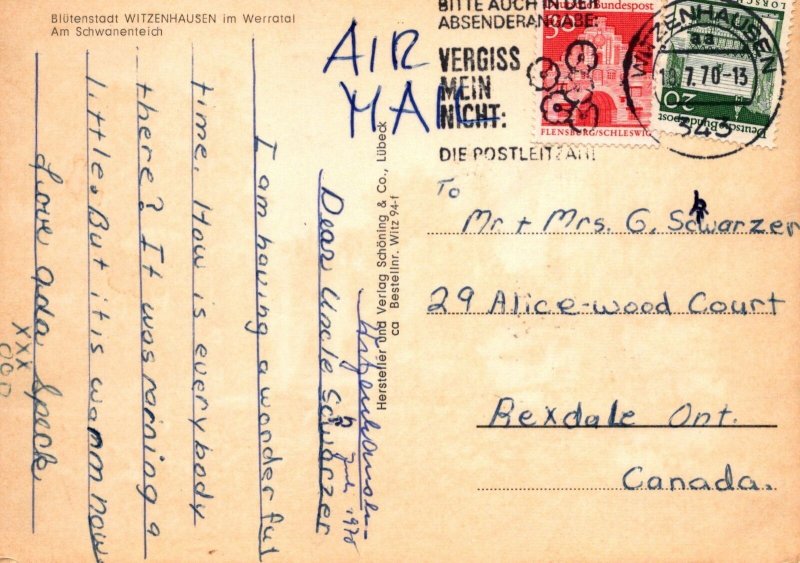 Blütenstadt WITZENHAUSEN im Werratal
Am Schwanenteich
AIR
MAIL
BITTE AUCH IN DER
ABSENDERANGABE:
VERGISS
MEIN
NICHT:
DIE POSTLEITZAHL
Deutsche Bundespost
30
FLENSBURG/SCHLESWIG
WITZENHAUSEN
aa
19.7.70-13
343
Deutsche Bundespost
20
LORSCH
Hersteller und Verlag Schöning & Co., Lübeck
ca Bestellnr. Witz 94-f
Witzenhausen-
July 1970
Dear Uncle Schwarzer
I am having a wonderful
time. How is everybody
there? It was raining a
little. But it is warm now.
Love Ada Speck
XXX
OOO
To
Mr + Mrs. G. Schwarzer
29 Alice-wood Court
Rexdale Ont.
Canada.